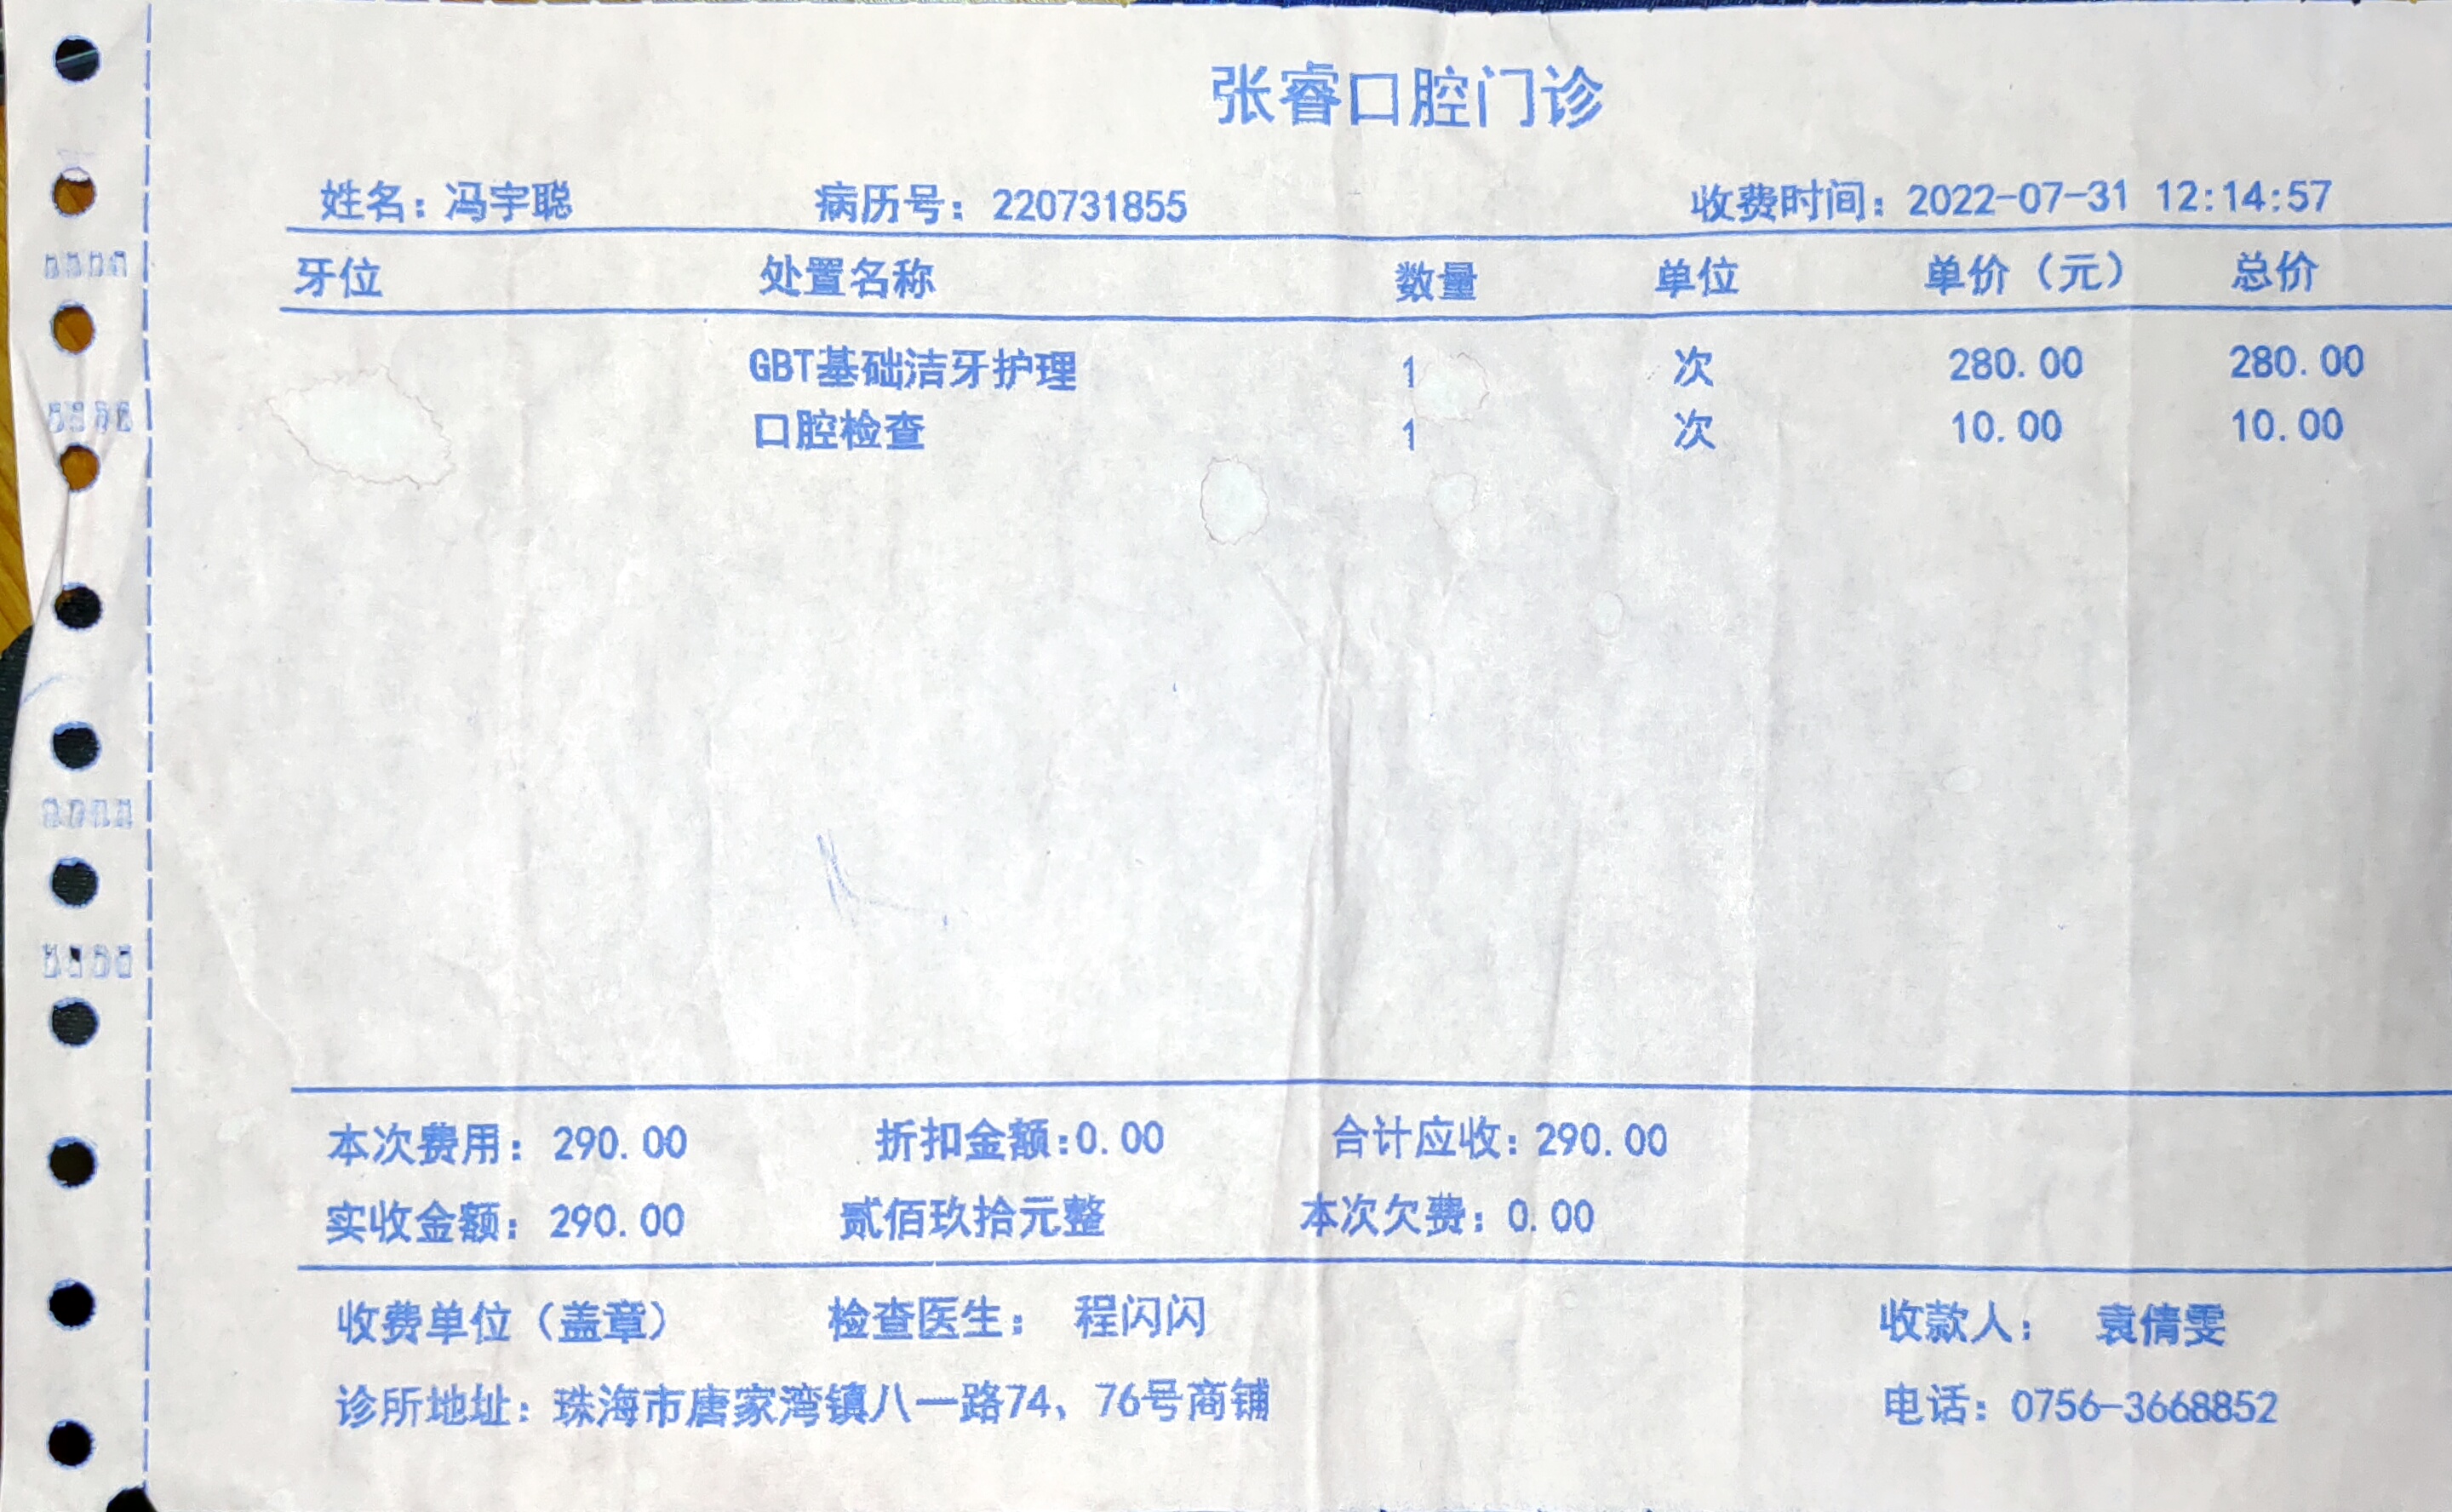 张睿口腔门诊
姓名：冯宇聪 病历号：220731855 收费时间：2022-07-31 12:14:57
牙位 处置名称 数量 单位 单价（元） 总价
GBT基础洁牙护理 1 次 280.00 280.00
口腔检查 1 次 10.00 10.00
本次费用：290.00 折扣金额:0.00 合计应收：290.00
实收金额：290.00 贰佰玖拾元整 本次欠费：0.00
收费单位（盖章） 检查医生： 程闪闪 收款人： 袁倩雯
诊所地址：珠海市唐家湾镇八一路74、76号商铺 电话：0756-3668852